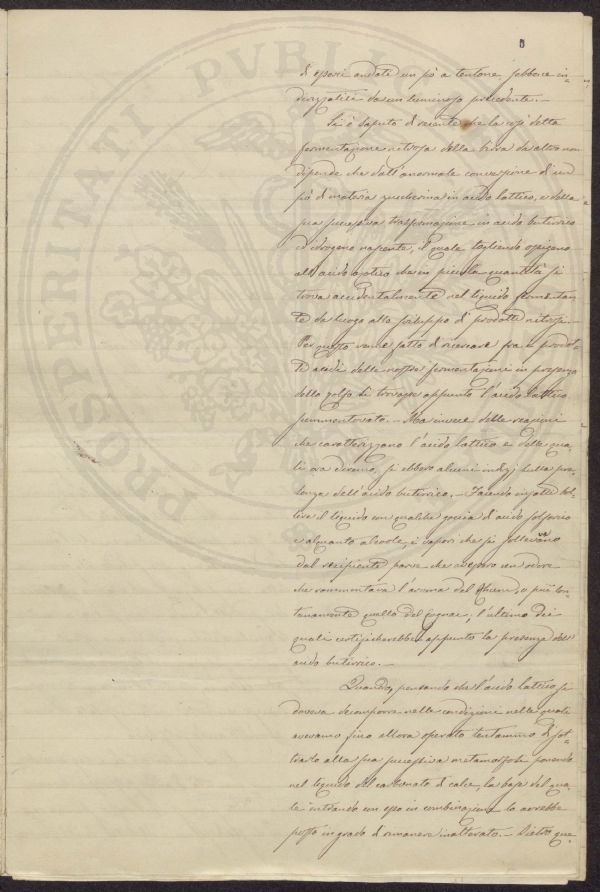 di essi andati un pò a tentone, sebbene in-
dirizzatici da un luminoso precedente. -
Si è saputo di recente che la così detta
fermentazione nitrosa della birra da altro non
dipende che dall'anormale conversione di un
pò di materia zuccherina in acido lattico, e della
sua successiva trasformazione in acido butirrico
ed idrogeno nascente, il quale, togliendo ossigeno
all'acido azotico che in piccola quantità si
trova accidentalmente nel liquido fermentan-
te da luogo allo sviluppo di prodotti nitrosi. -
Per questo venne fatto di ricercare fra i prodot-
ti acidi delle nostre fermentazioni in presenza
dello zolfo se trovasse appunto l'acido lattico
summentovato. - Ma invece delle reazioni
che caratterizzano l'acido lattico e delle qua-
li ora diremo, si ebbero alcuni indizj sulla pre-
senza dell'acido butirrico. - Facendo infatti bol-
lire il liquido con qualche goccia di acido solforico
e alquanto alcoole, i vapori che si sollevavano
dal recipiente parve che avessero un odore
che rammentava l'aroma del Rhum, o più lon-
tanamente quello del Cognac, l'ultimo dei
quali certificherebbe appunto la presenza dell'
acido butirrico. -
Quando, pensando che l'acido lattico si
doveva decomporre nelle condizioni nelle quali
avevamo fino allora operato tentammo di sot-
trarlo alla sua successiva metamorfosi ponendo
nel liquido del carbonato di calce, la base del qua-
le entrando con esso in combinazione lo avrebbe
posto in grado di rimanere inalterato. - Dietro que-
PROSPERITATI PVBLIC